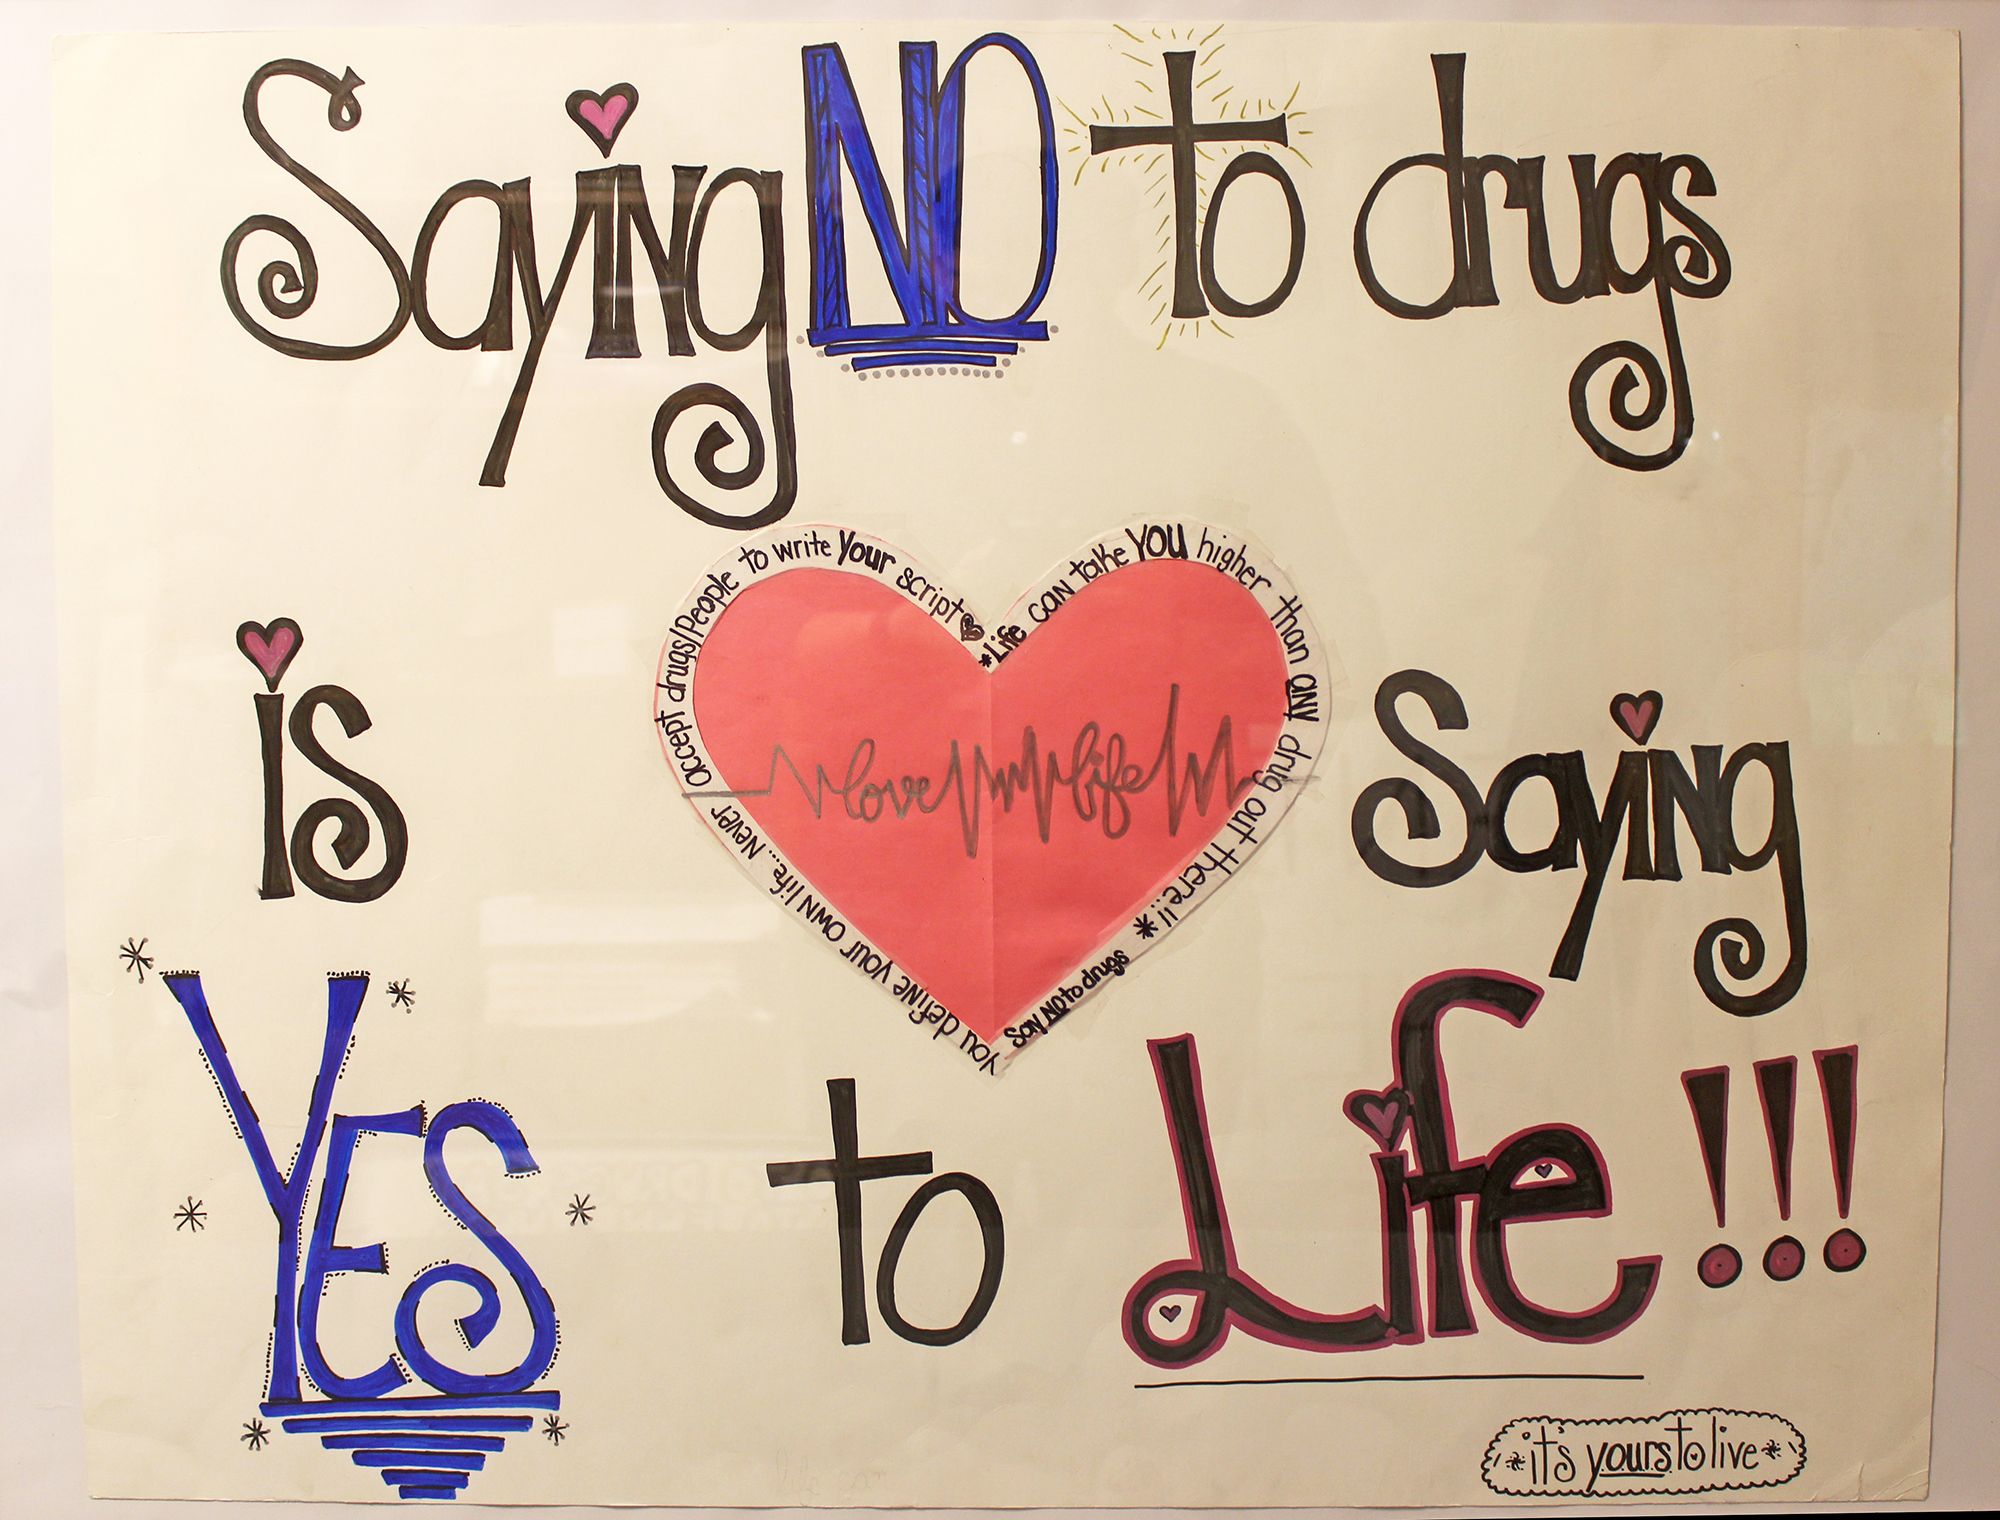 Saying NO to drugs
is Saying
YES to Life!!!
You define your own life... Never accept drugs/People to write your script
*Life can take YOU higher than any drug out there!!! *
Say NO to drugs
love life
*it's yours to live*